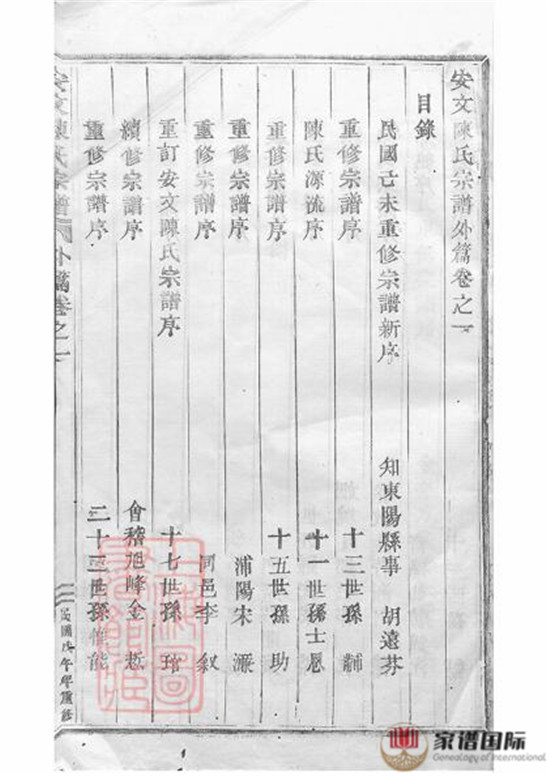 安文陳氏宗譜外篇卷之一
目錄
民國己未重修宗譜新序 知東陽縣事 胡遠芬
重修宗譜序 十三世孫 黼
陳氏源流序 十一世孫士恩
重修宗譜序 十五世孫 助
重修宗譜序 浦陽宋 濂
重修宗譜序 同邑李 叙
重訂安文陳氏宗譜序 十七世孫
續修宗譜序 會稽旭峰金
重修宗譜序 二十三世孫惟能
安文陳氏宗譜 外篇卷之一
民國戊午年重訂
家谱国际
Genealogy of International